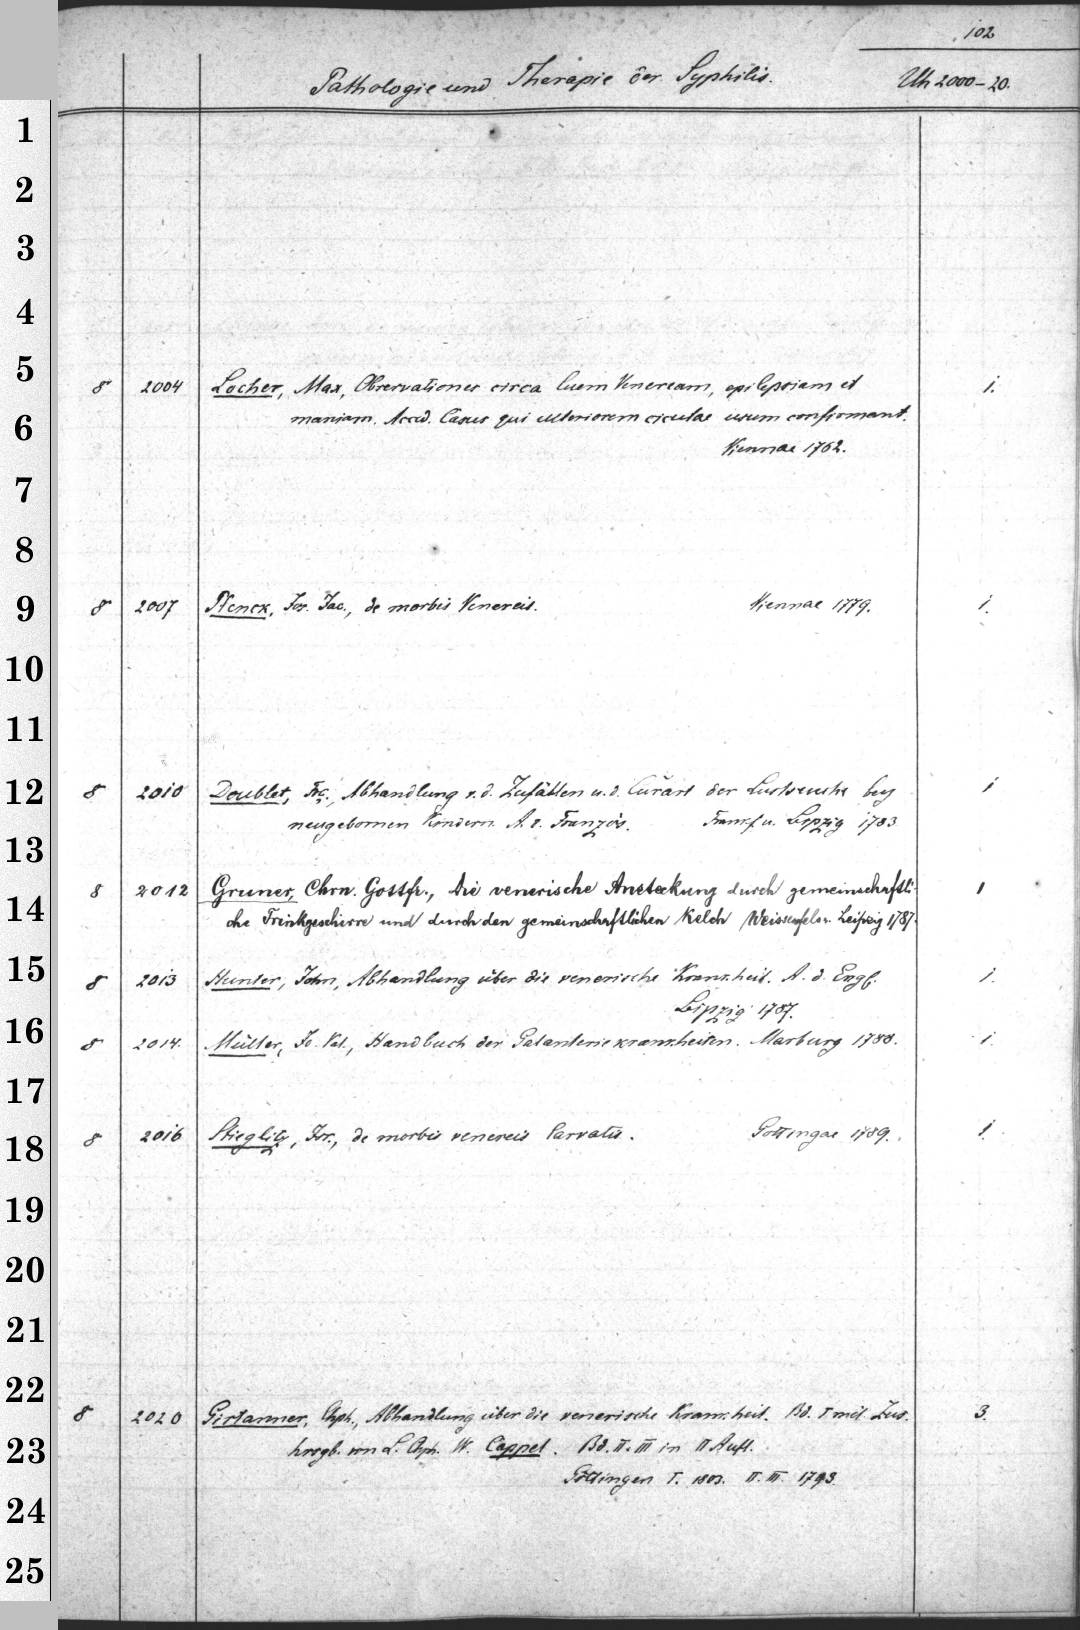 102
Pathologie und Therapie der Syphilis. Uh 2000-20.
1
2
3
4
5
8 2004 Locher, Max, Observationes circa luem Veneream, epilepsiam et 1.
maniam. Accd. Casus qui ulteriorem cicutae usum confirmant.
6
Viennae 1762.
7
8
9
8 2007 Plenck, Jos. Jac., de morbis Venereis. Viennae 1779. 1.
10
11
12
8 2010 Doublet, Frç., Abhandlung v. d. Zufällen u. d. Curart der Lustseuche bey 1
neugebornen Kindern. A. d. Französ. Frankf. u. Leipzig 1783
13
8 2012 Gruner, Chrn. Gottfr., die venerische Ansteckung durch gemeinschaftli- 1
14
che Trinkgeschirre und durch den gemeinschaftlichen Kelch Weissenfels u. Leipzig 1787.
15
8 2013 Hunter, John, Abhandlung über die venerische Krankheit. A. d. Engl. 1.
Leipzig 1787.
16
8 2014. Müller, Jo. Val., Handbuch der Galanteriekrankheiten. Marburg 1788. 1.
17
18
8 2016 Stieglitz, Isr., de morbis venereis larvatis. Gottingae 1789. 1.
19
20
21
22
8 2020 Girtanner, Chph., Abhandlung über die venerische Krankheit. Bd. I mit Zus. 3.
23
hrsgb. von L. Chph. W. Cappel. Bd. II. III in II Aufl.
Göttingen I. 1803. II. III. 1793.
24
25